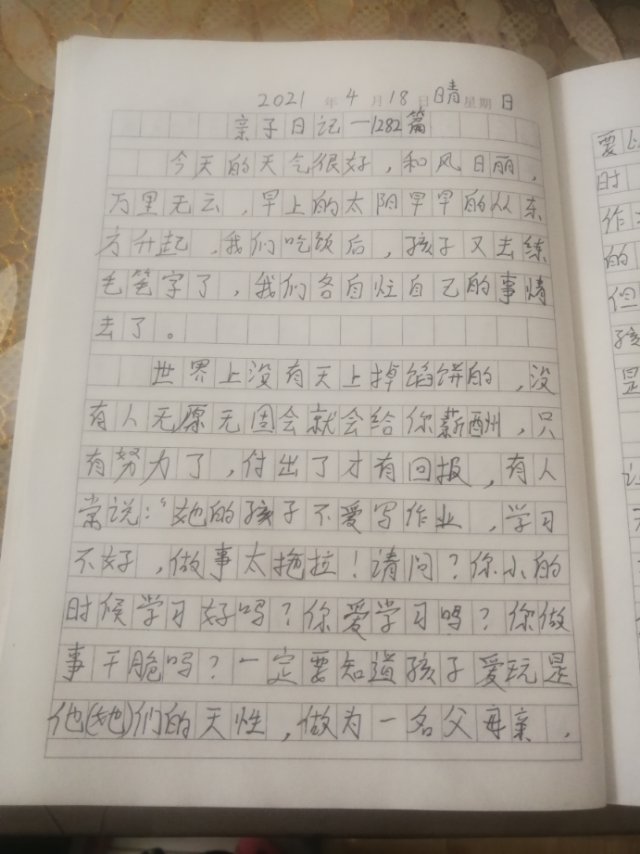 2021 年 4 月 18 日 晴 星期 日
亲子日记 一1282篇
今天的天气很好，和风日丽，
万里无云，早上的太阳早早的从东
方升起，我们吃饭后，孩子又去练
毛笔字了，我们各自忙自己的事情
去了。
世界上没有天上掉馅饼的，没
有人无原无固会就会给你薪酬，只
有努力了，付出了才有回报，有人
常说：“她的孩子不爱写作业，学习
不好，做事太拖拉！请问？你小的
时候学习好吗？你爱学习吗？你做
事干脆吗？一定要知道孩子爱玩是
他(她)们的天性，做为一名父母亲，
要
时
作
的
但
孩
是